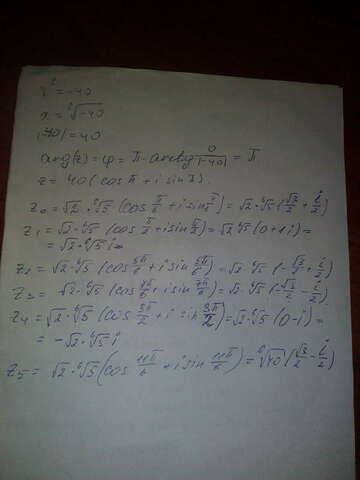 x⁶ = -40
x = ⁶√-40
|-40| = 40
arg(z) = φ = π - arctg 0/|-40| = π
z = 40 (cos π + i sin π).
z₀ = √2 · ⁶√5 (cos π/6 + i sin π/6) = √2 · ⁶√5 (√3/2 + i/2)
z₁ = √2 · ⁶√5 (cos π/2 + i sin π/2) = √2 ⁶√5 (0 + 1i) =
= √2 · ⁶√5 i
z₂ = √2 · ⁶√5 (cos 5π/6 + i sin 5π/6) = √2 · ⁶√5 (-√3/2 + i/2)
z₃ = √2 · ⁶√5 (cos 7π/6 + i sin 7π/6) = √2 · ⁶√5 (-√3/2 - i/2)
z₄ = √2 · ⁶√5 (cos 3π/2 + i sin 3π/2) = √2 · ⁶√5 (0 - i) =
= -√2 · ⁶√5 i
z₅ = √2 · ⁶√5 (cos 11π/6 + i sin 11π/6) = ⁶√40 (√3/2 - i/2)